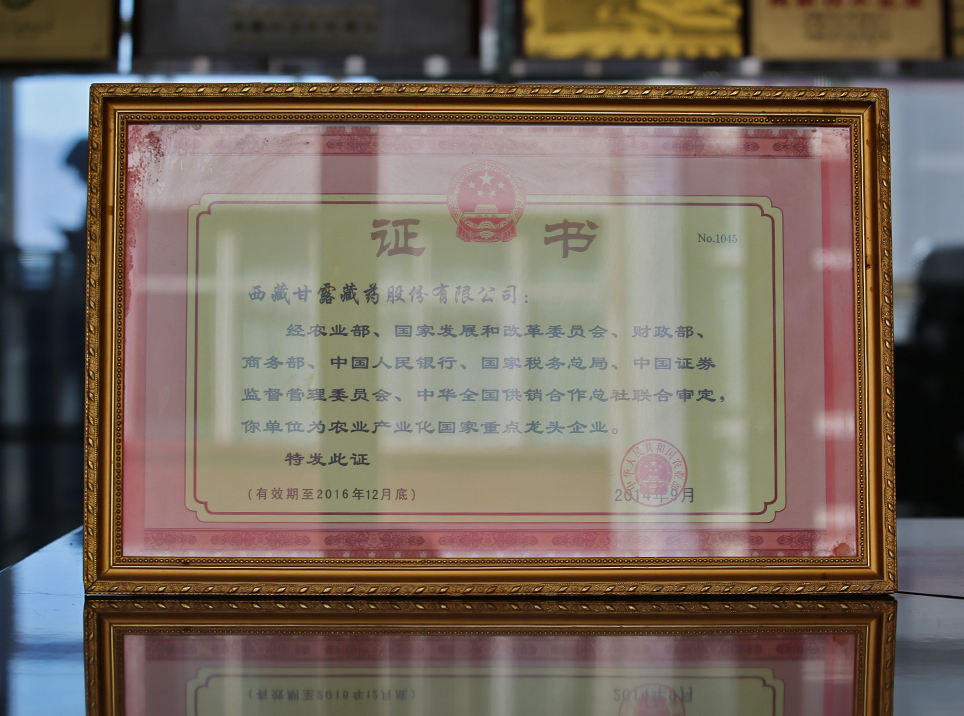 证书
No.1045
西藏甘露藏药股份有限公司：
经农业部、国家发展和改革委员会、财政部、
商务部、中国人民银行、国家税务总局、中国证券
监督管理委员会、中华全国供销合作总社联合审定，
你单位为农业产业化国家重点龙头企业。
特发此证
（有效期至2016年12月底）
2014年9月
中华人民共和国农业部